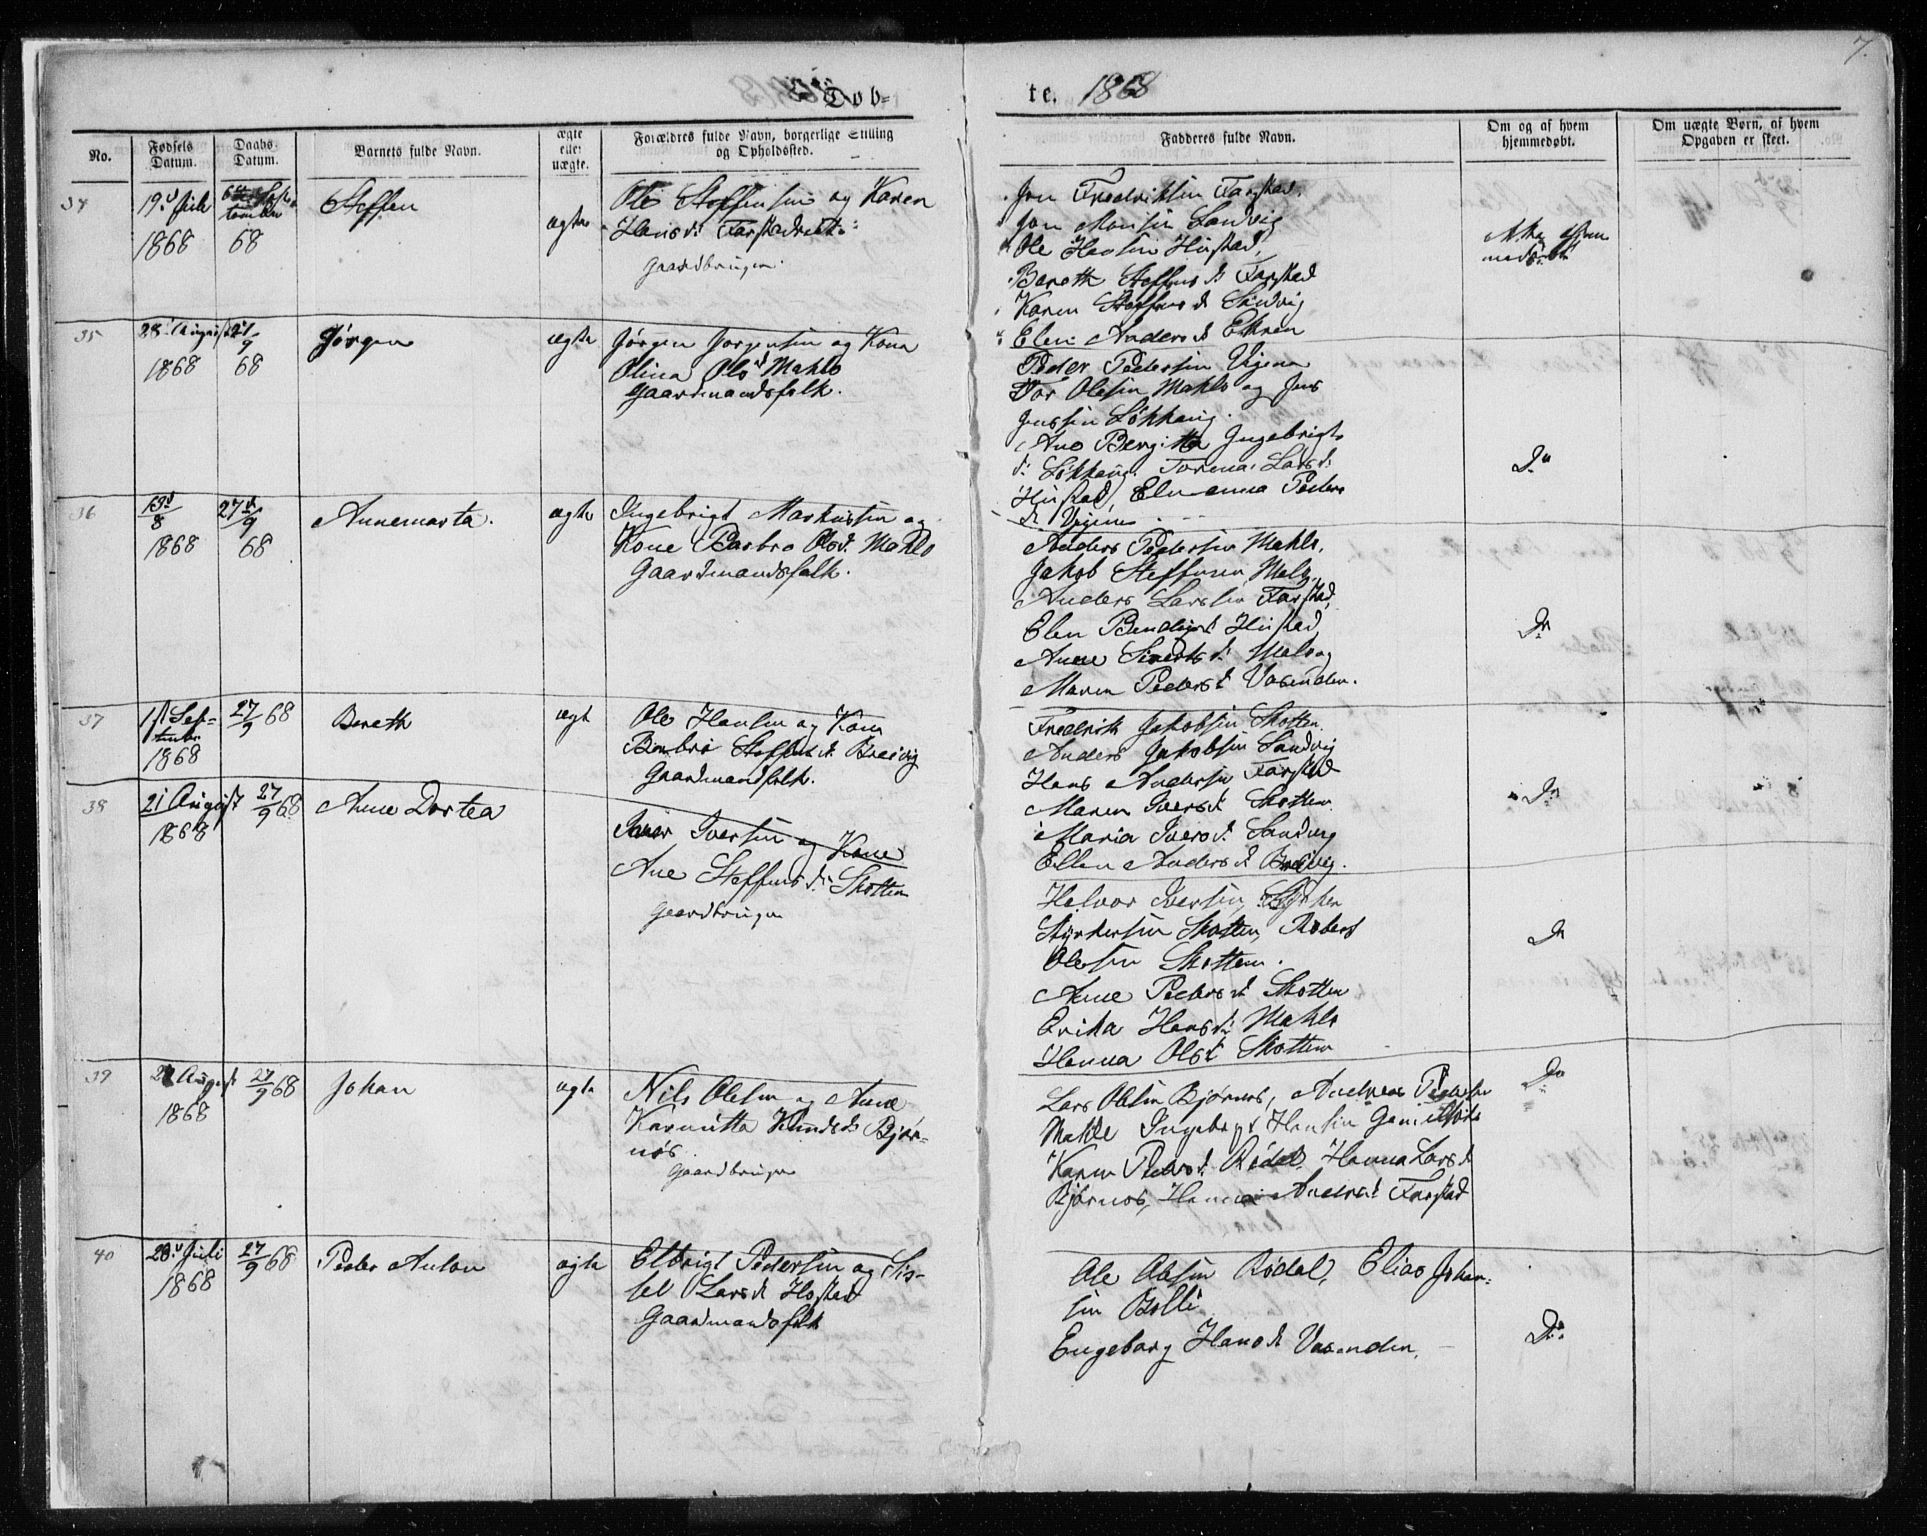 7.
Døb=
te. 1868
No.
Fødsels Datum.
Daabs Datum.
Barnets fulde Navn.
ægte eller uægte.
Forældres fulde Navn, borgerlige Stilling og Opholdssted.
Fadderes fulde Navn.
Om og af hvem hjemmedøbt.
Om uægte Børn, af hvem Opgaven er skeet.
34
19d Juli
1868
68
Steffen
ægte
Ole Steffensen og Karen
Hansd:
Gaardbruger
Jon Fredriksen Farstad,
Jon Monsen Sandvig
Ole Hansen Hustad,
Bereth Steffensd: Farstad
Karen Steffensd Sandvig
Elen Andersd
Ikke hjem
medøbt
35
28d August
1868
21/9
68
Jørgen
ægte
Jørgen Jørgensen og Kona
Olina Olsd Mahle
Gaardmandsfolk.
Peder Pedersen
Tor Olesen Mahle og Jens
Jensen Løkhaug.
Ane Bergitta Ingebrigts
d: Løkhaug, Larsd:
Hustad, Elenanna Peders
d
Do
36
13d/8
1868
27d/9
68
Annemarta.
ægte
Ingebrigt Markussen og
Kone Barbro Olsd. Mahle
Gaardmandsfolk.
Anders Pedersen Mahle,
Jakob Steffensen
Anders Larsen Farstad,
Elen Hustad
Anne Sivertsd:
Maren Pedersd Vasenden.
Do
37
1st Sep=
tember
1868
27/9 68
Bereth
ægt
Ole Hansen og Kone
Steffensd. Breivig
Gaardmandfolk.
Fredrik Jakobsen Skotten
Anders Jakobsen Sandvig
Hans Andersen Farstad
Maren Iversd Skotten
Maria Iversd. Sandvig
Ellen Andersd Breivig.
Do
38
21 August
1868
27/9 68
Anne Dortea
Iver Iversen og Kone
Ane Steffensd: Skotten
Gaardbruger
Halvor Iversen,
Skotten,
Olesen Skotten.
Anne Pedersd Skotten
Erika Hansd: Mahle
Hanna Olsd Skotten
Do
39
August
1868
27/9 68
Johan
ægte
Nils Olsen og Anne
Knudsd: Bjør=
nøs.
Gaardbruger
Lars Olsen Bjørnøs, Andreas Pedersen
Mahle Ingebrigt Hansen
Karen Pedersd. Rødal, Hanna Larsd
Bjørnøs, Farstad
Do
40
20d Juli
1868
27/9 68
Peder Anton
ægte
Elbrigt Pedersen og Sis=
sel Larsd Hostad
Gaardmandsfolk
Ole Olsen Rødal, Elias Johan=
sen Bolli
Engeborg Hansd Vasenden.
Do